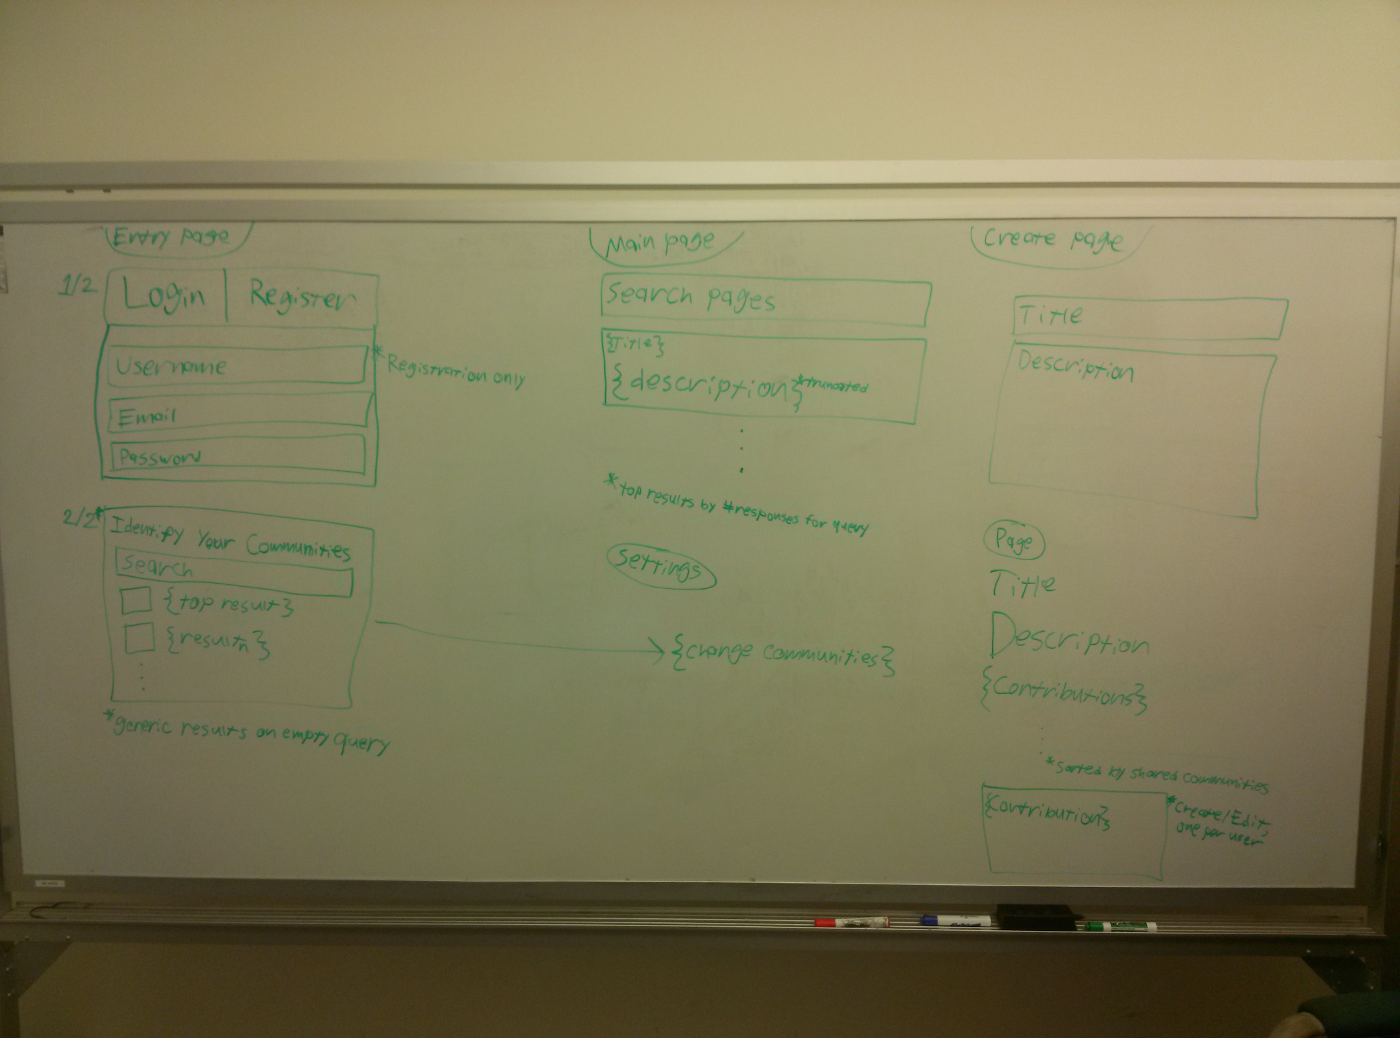 Entry page
1/2
Login | Register
Username
* Registration only
Email
Password
2/2*
Identify Your Communities
Search
{top result}
{resultn}
*generic results on empty query
Main page
Search pages
{Title}
{description} *truncated
*top results by #responses for query
Settings
{change communities}
Create page
Title
Description
Page
Title
Description
{Contributions}
*Sorted by shared communities
{Contribution}
*Create/Edit,
one per user